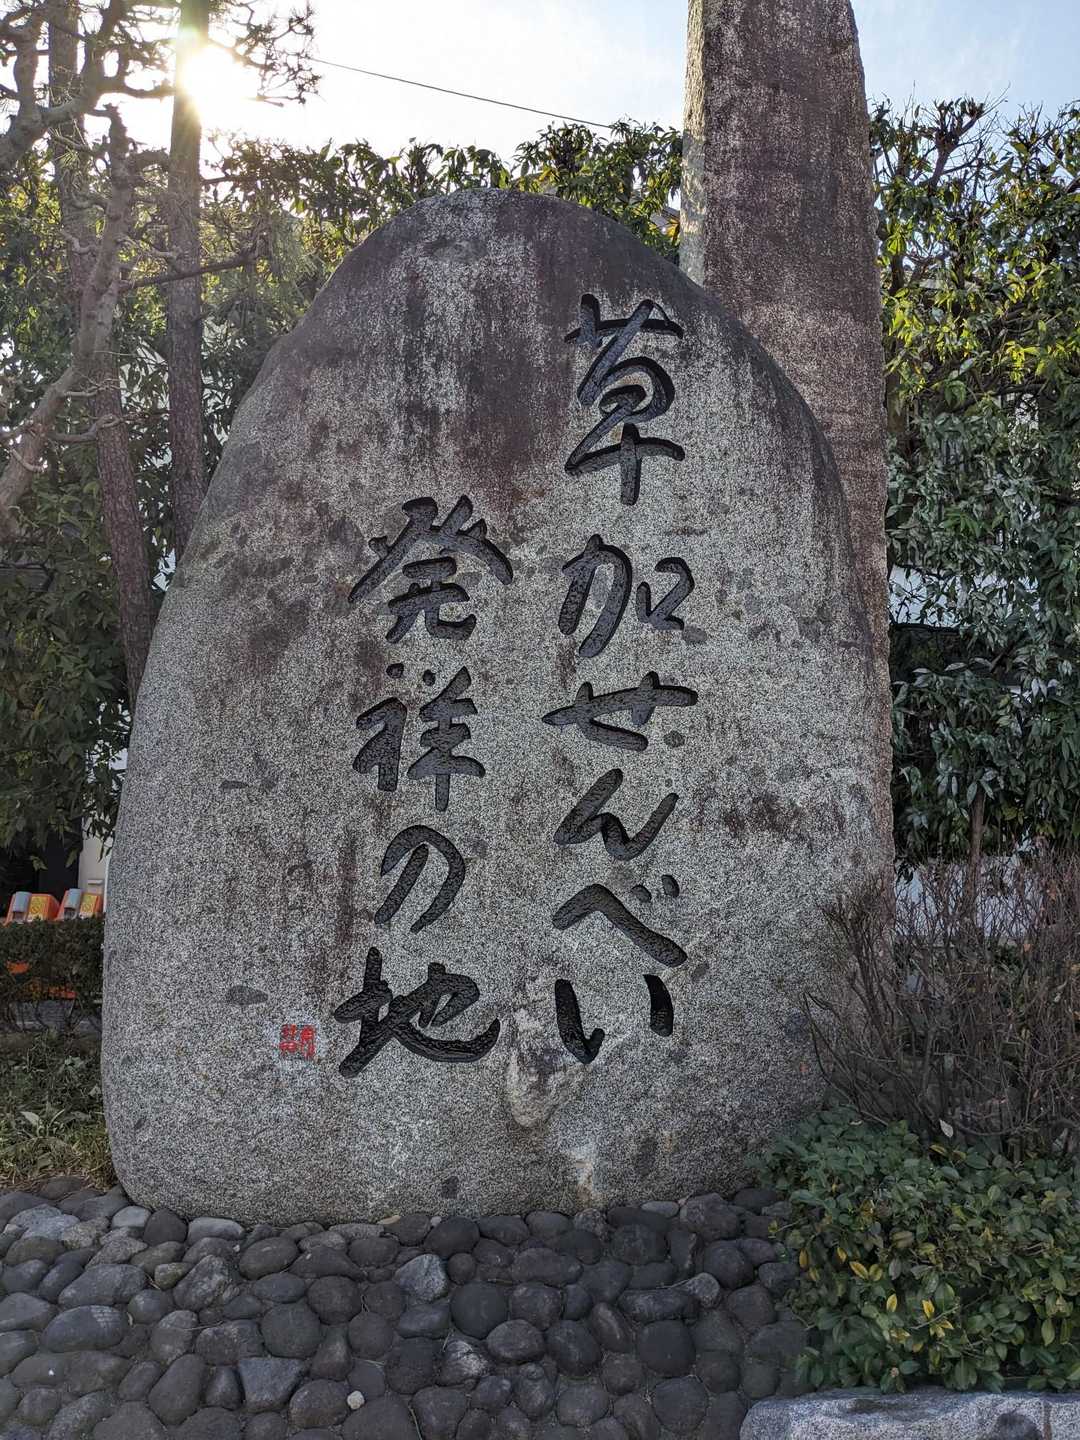 草加せんべい
発祥の地